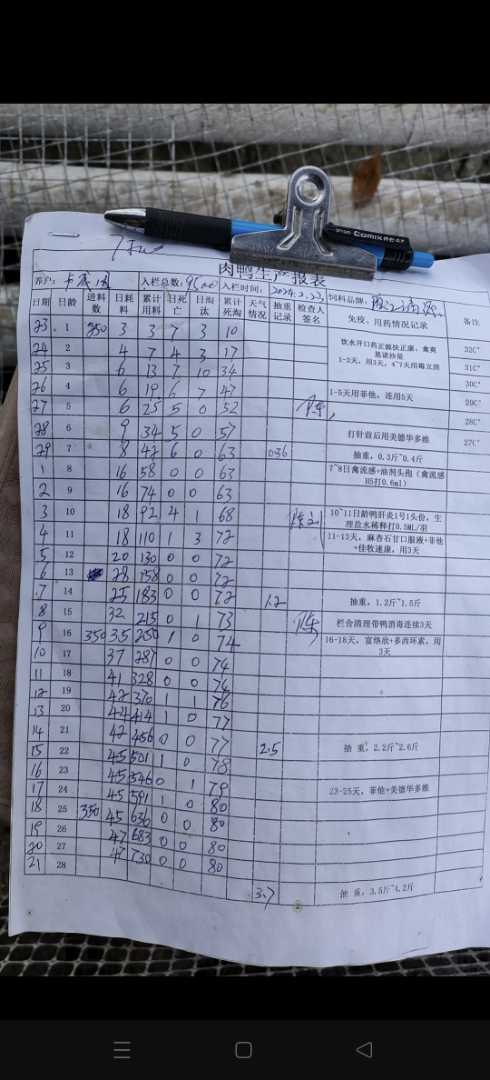 肉鸭生产报表
入栏总数: 9500 入栏时间: 2024.2.23 饲料品牌:
日期 日龄 进料数 日耗料 累计用料 日死亡 日淘汰 累计死淘 天气情况 抽重记录 检查人签名 免疫、用药情况记录 备注
23 1 350 3 3 7 3 10
24 2 4 7 4 3 17 32C°
25 3 6 13 7 10 34 1-2天,用3天, 31C°
26 4 6 19 6 7 47 30C°
27 5 6 25 5 0 52 陈 1-5天用菲他,连用5天 29C°
28 6 9 34 5 0 57 打针前后用美德华多维 28C°
29 7 8 42 6 0 63 0.36 抽重,0.3斤~0.4斤 27C°
1 8 16 58 0 0 63 7~8日禽流感+油剂头孢(禽流感H5打0.6ml)
2 9 16 74 0 0 63
3 10 18 92 4 1 68 10~11日龄鸭肝炎1号1头份,生理盐水稀释打0.5ML/羽
4 11 18 110 1 3 72 11-13天,麻杏石甘口服液+菲他+佳牧速康,用3天
5 12 20 130 0 0 72
6 13 28 158 0 0 72
7 14 25 183 0 0 72 1.2 抽重,1.2斤~1.5斤
8 15 32 215 0 1 73 陈 栏舍清理带鸭消毒连续3天
9 16 350 35 250 1 0 74 16-18天,富络欣+多西环素,用3天
10 17 37 287 0 0 74
11 18 41 328 0 0 74
12 19 42 370 1 1 76
13 20 44 414 1 0 77
14 21 42 456 0 0 77 2.5 抽重,2.2斤~2.6斤
15 22 45 501 1 0 78
16 23 45 546 0 1 79
17 24 45 591 1 0 80 23-25天,菲他+美德华多维
18 25 350 45 636 0 0 80
19 26 47 683 0 0 80
20 27 47 730 0 0 80
21 28 3.7 抽重,3.5斤~4.2斤